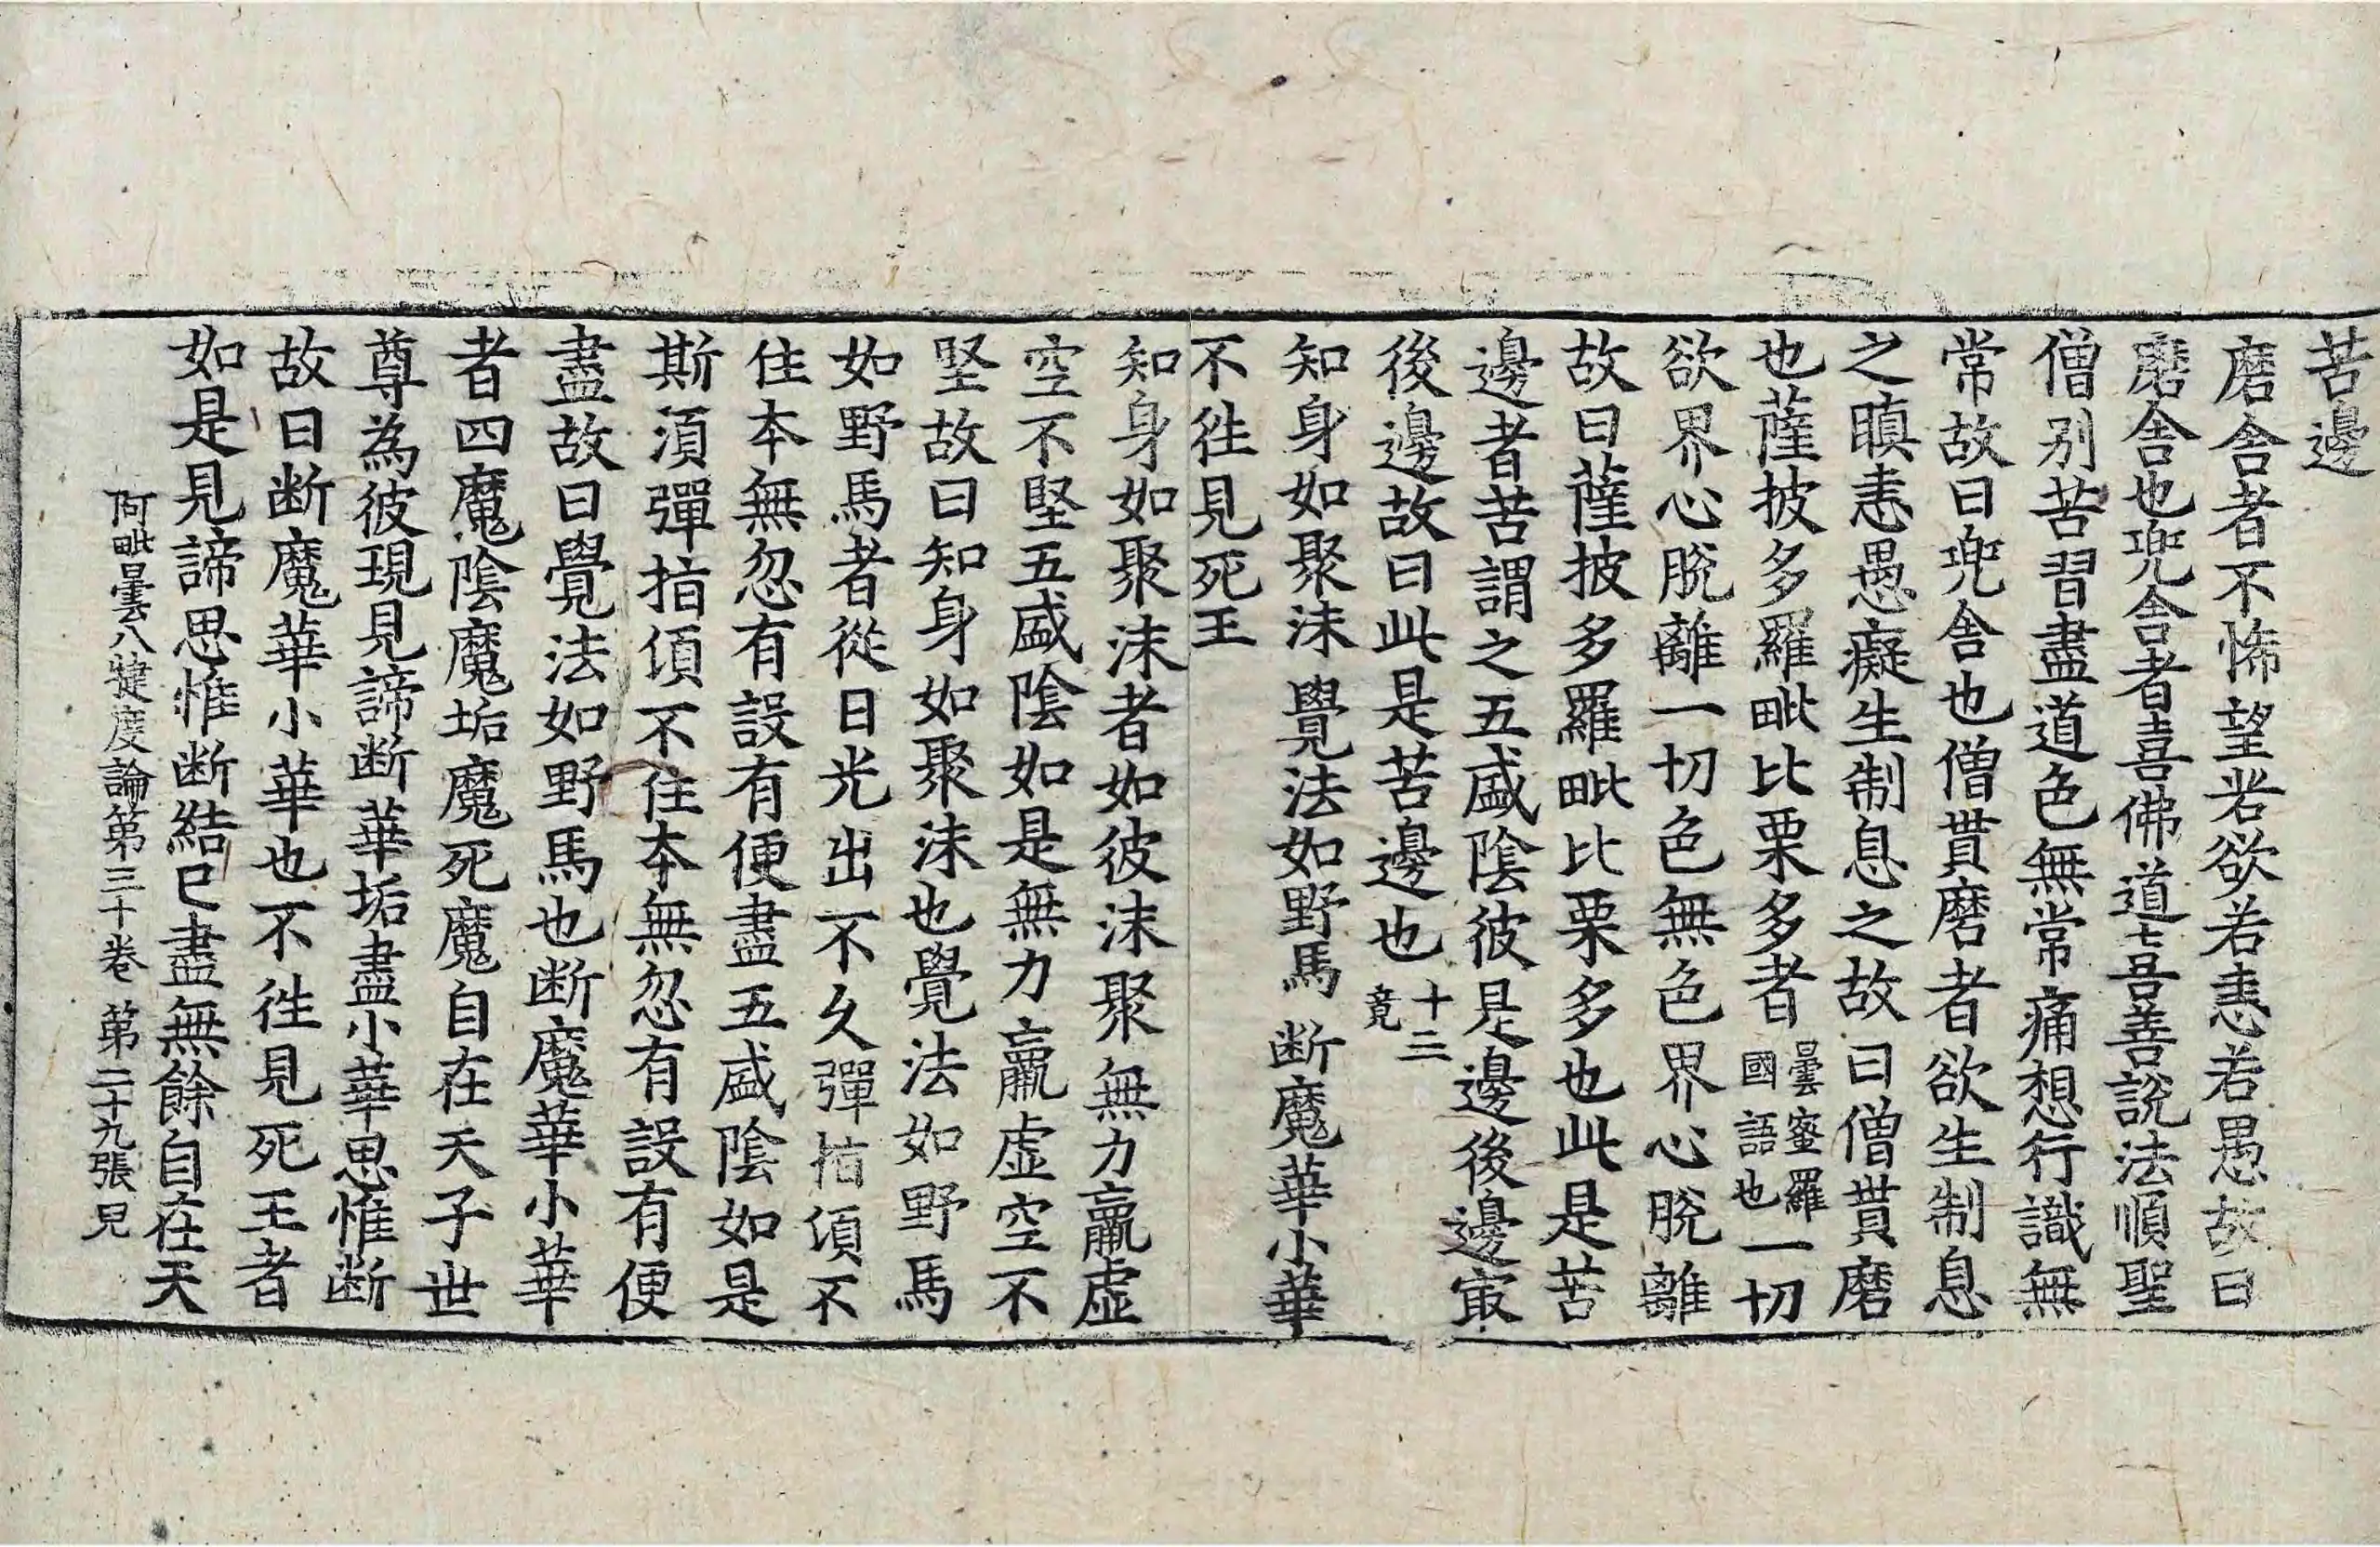 苦邊
磨舍者不怖望若欲若恚若愚故曰
磨舍也兜舍者喜佛道七吾善說法順聖
僧別苦習盡道色無常痛想行識無
常故曰兜舍也僧貫磨者欲生制息
之瞋恚愚癡生制息之故曰僧貫磨
也薩披多羅毗比栗多者曇蜜羅國語也一切
欲界心脫離一切色無色界心脫離
故曰薩披多羅毗比栗多也此是苦
邊者苦謂之五盛陰彼是邊後邊㝡
後邊故曰此是苦邊也十三竟
知身如聚沫 覺法如野馬 断魔華小華
不徃見死王
知身如聚沫者如彼沫聚無力羸虛
空不堅五盛陰如是無力羸虛空不
堅故曰知身如聚沫也覺法如野馬
如野馬者從日光出不久彈指湏不
住本無忽有設有便盡五盛陰如是
斯湏彈指傾不住本無忽有設有便
盡故曰覺法如野馬也断魔華小華
者四魔陰魔垢魔死魔自在天子世
尊為彼現見諦断華垢盡小華思惟断
故曰断魔華小華也不徃見死王者
如是見諦思惟断結已盡無餘自在天
阿毗曇八犍度論第三十卷 第二十九張 皃